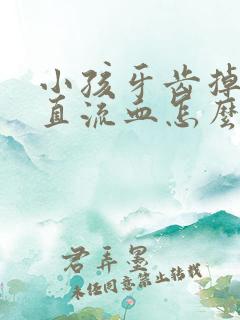 小孩牙齿掉
直流血怎麽
君弄墨
未经同意禁止转载